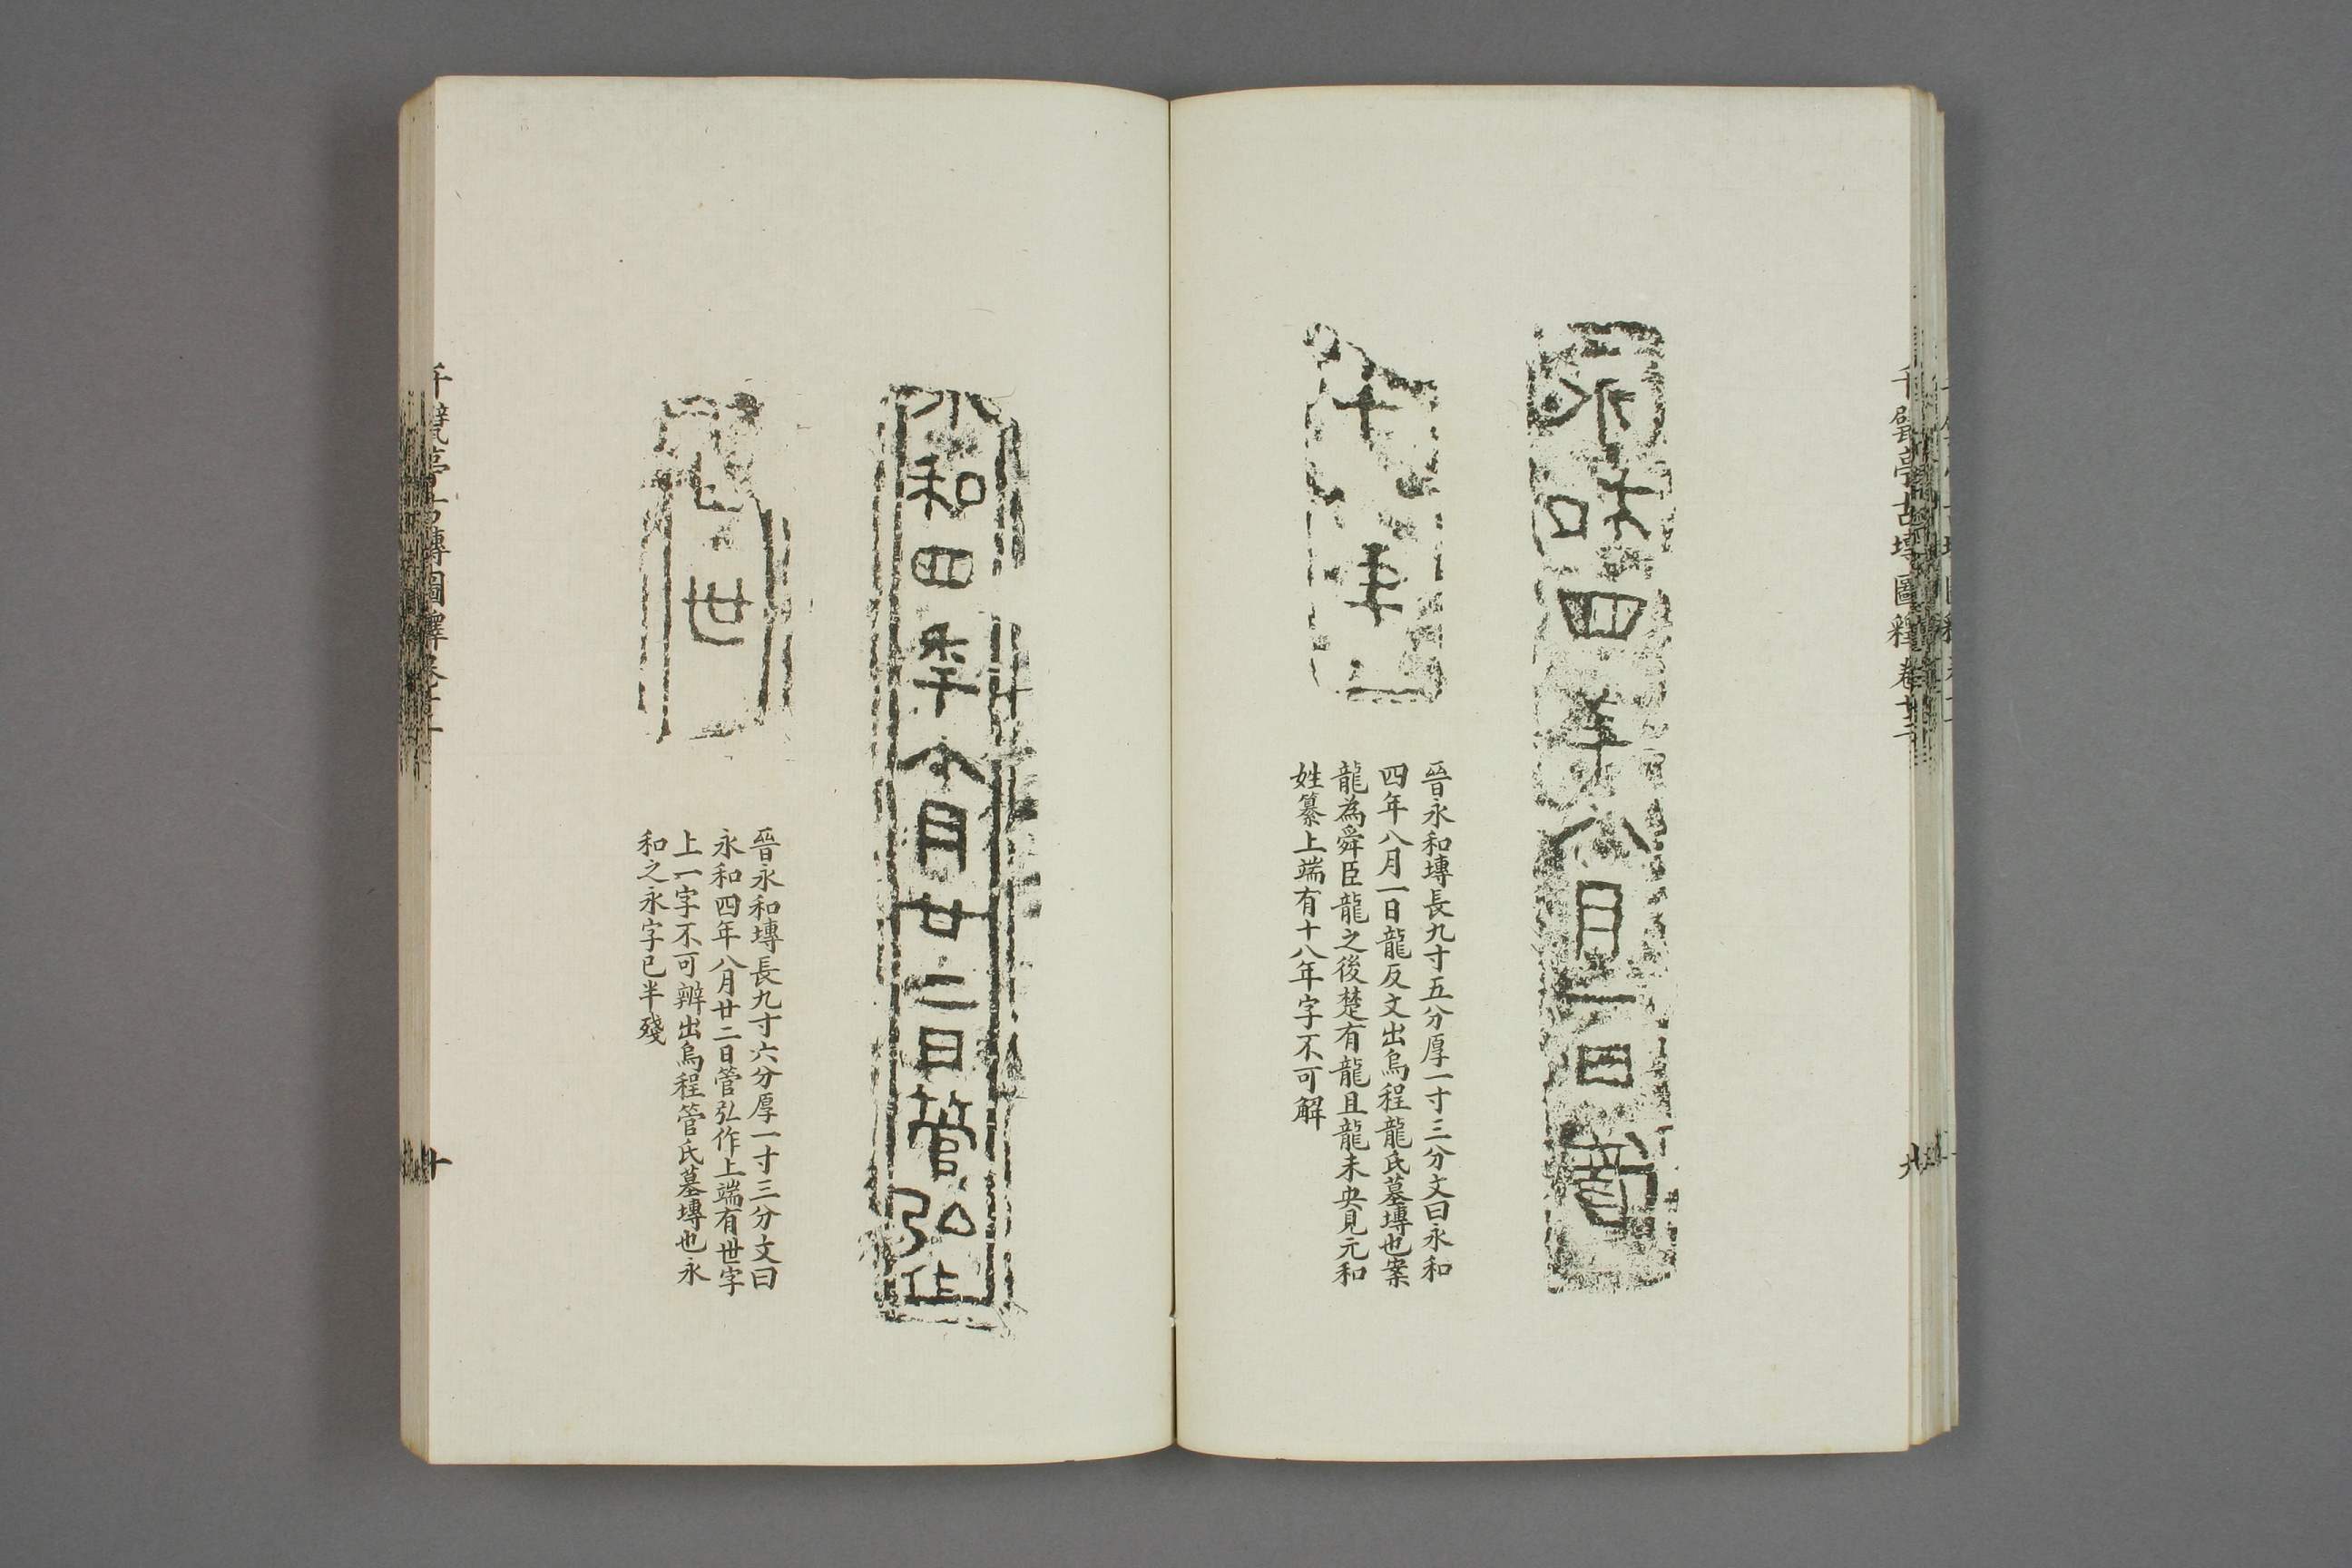 永和四年八月一日龍
十八年
晉永和塼長九寸五分厚一寸三分文曰永和
四年八月一日龍反文出烏程龍氏墓塼也案
龍為舜臣龍之後楚有龍且龍未央見元和
姓纂上端有十八年字不可解
千甓亭古塼圖釋卷十二
九
永和四年八月廿二日管弘作
世
晉永和塼長九寸六分厚一寸三分文曰
永和四年八月廿二日管弘作上端有世字
上一字不可辨出烏程管氏墓塼也永
和之永字已半殘
千甓亭古塼圖釋卷十二
十